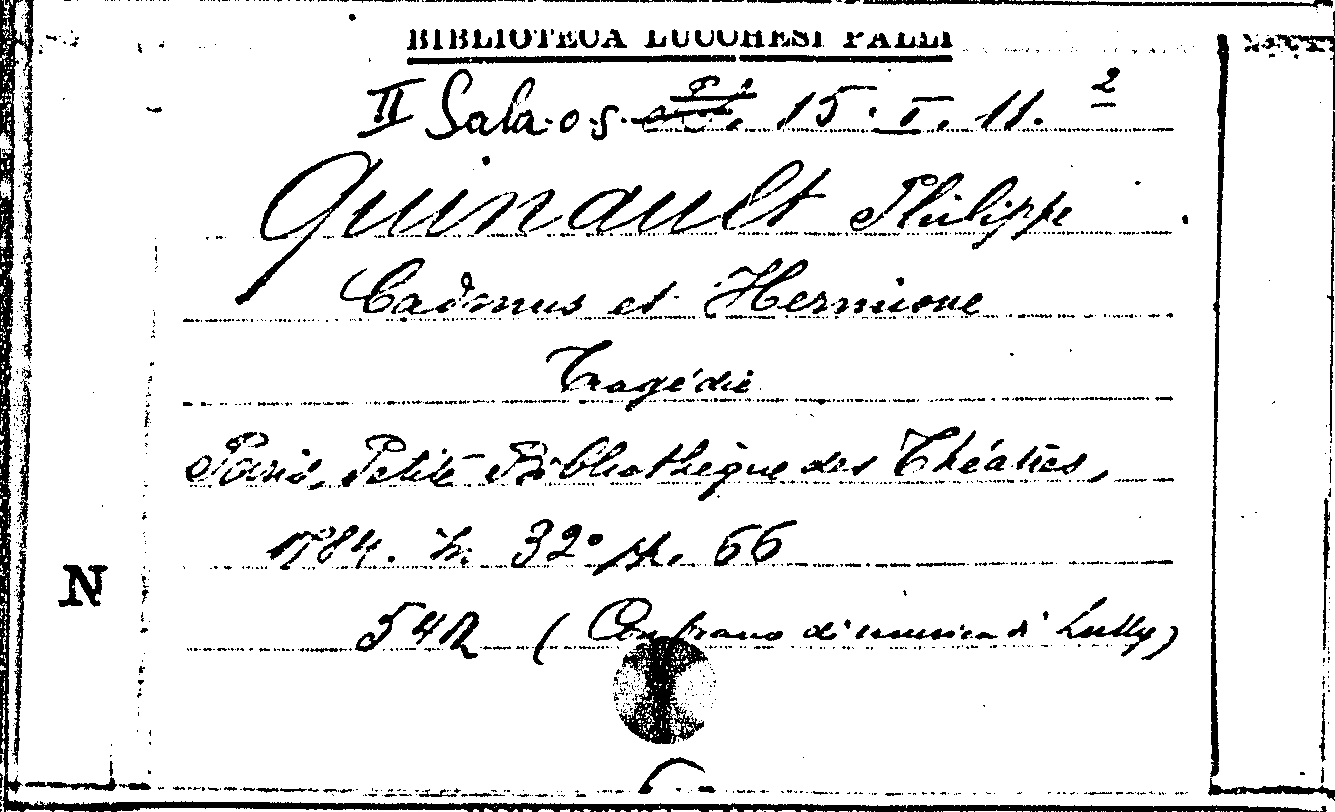 BIBLIOTECA LUCCHESI PALLI
II Sala. o. s. 15. I. 11. 2
Quinault Philippe
Cadmus et Hermione
Tragédie
Paris, Petite Bibliothèque des Théatres,
1784. in 32° pp. 66
N
542 (Con brano di musica di Lully)